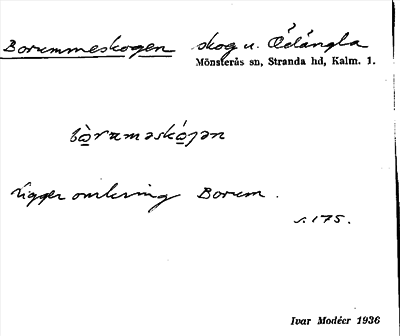 Borummeskogen skog u. Ödängla
Mönsterås sn, Stranda hd, Kalm. l.
bòrumǝskóʒǝn
ligger omkring Borum.
s. 175.
Ivar Modéer 1936